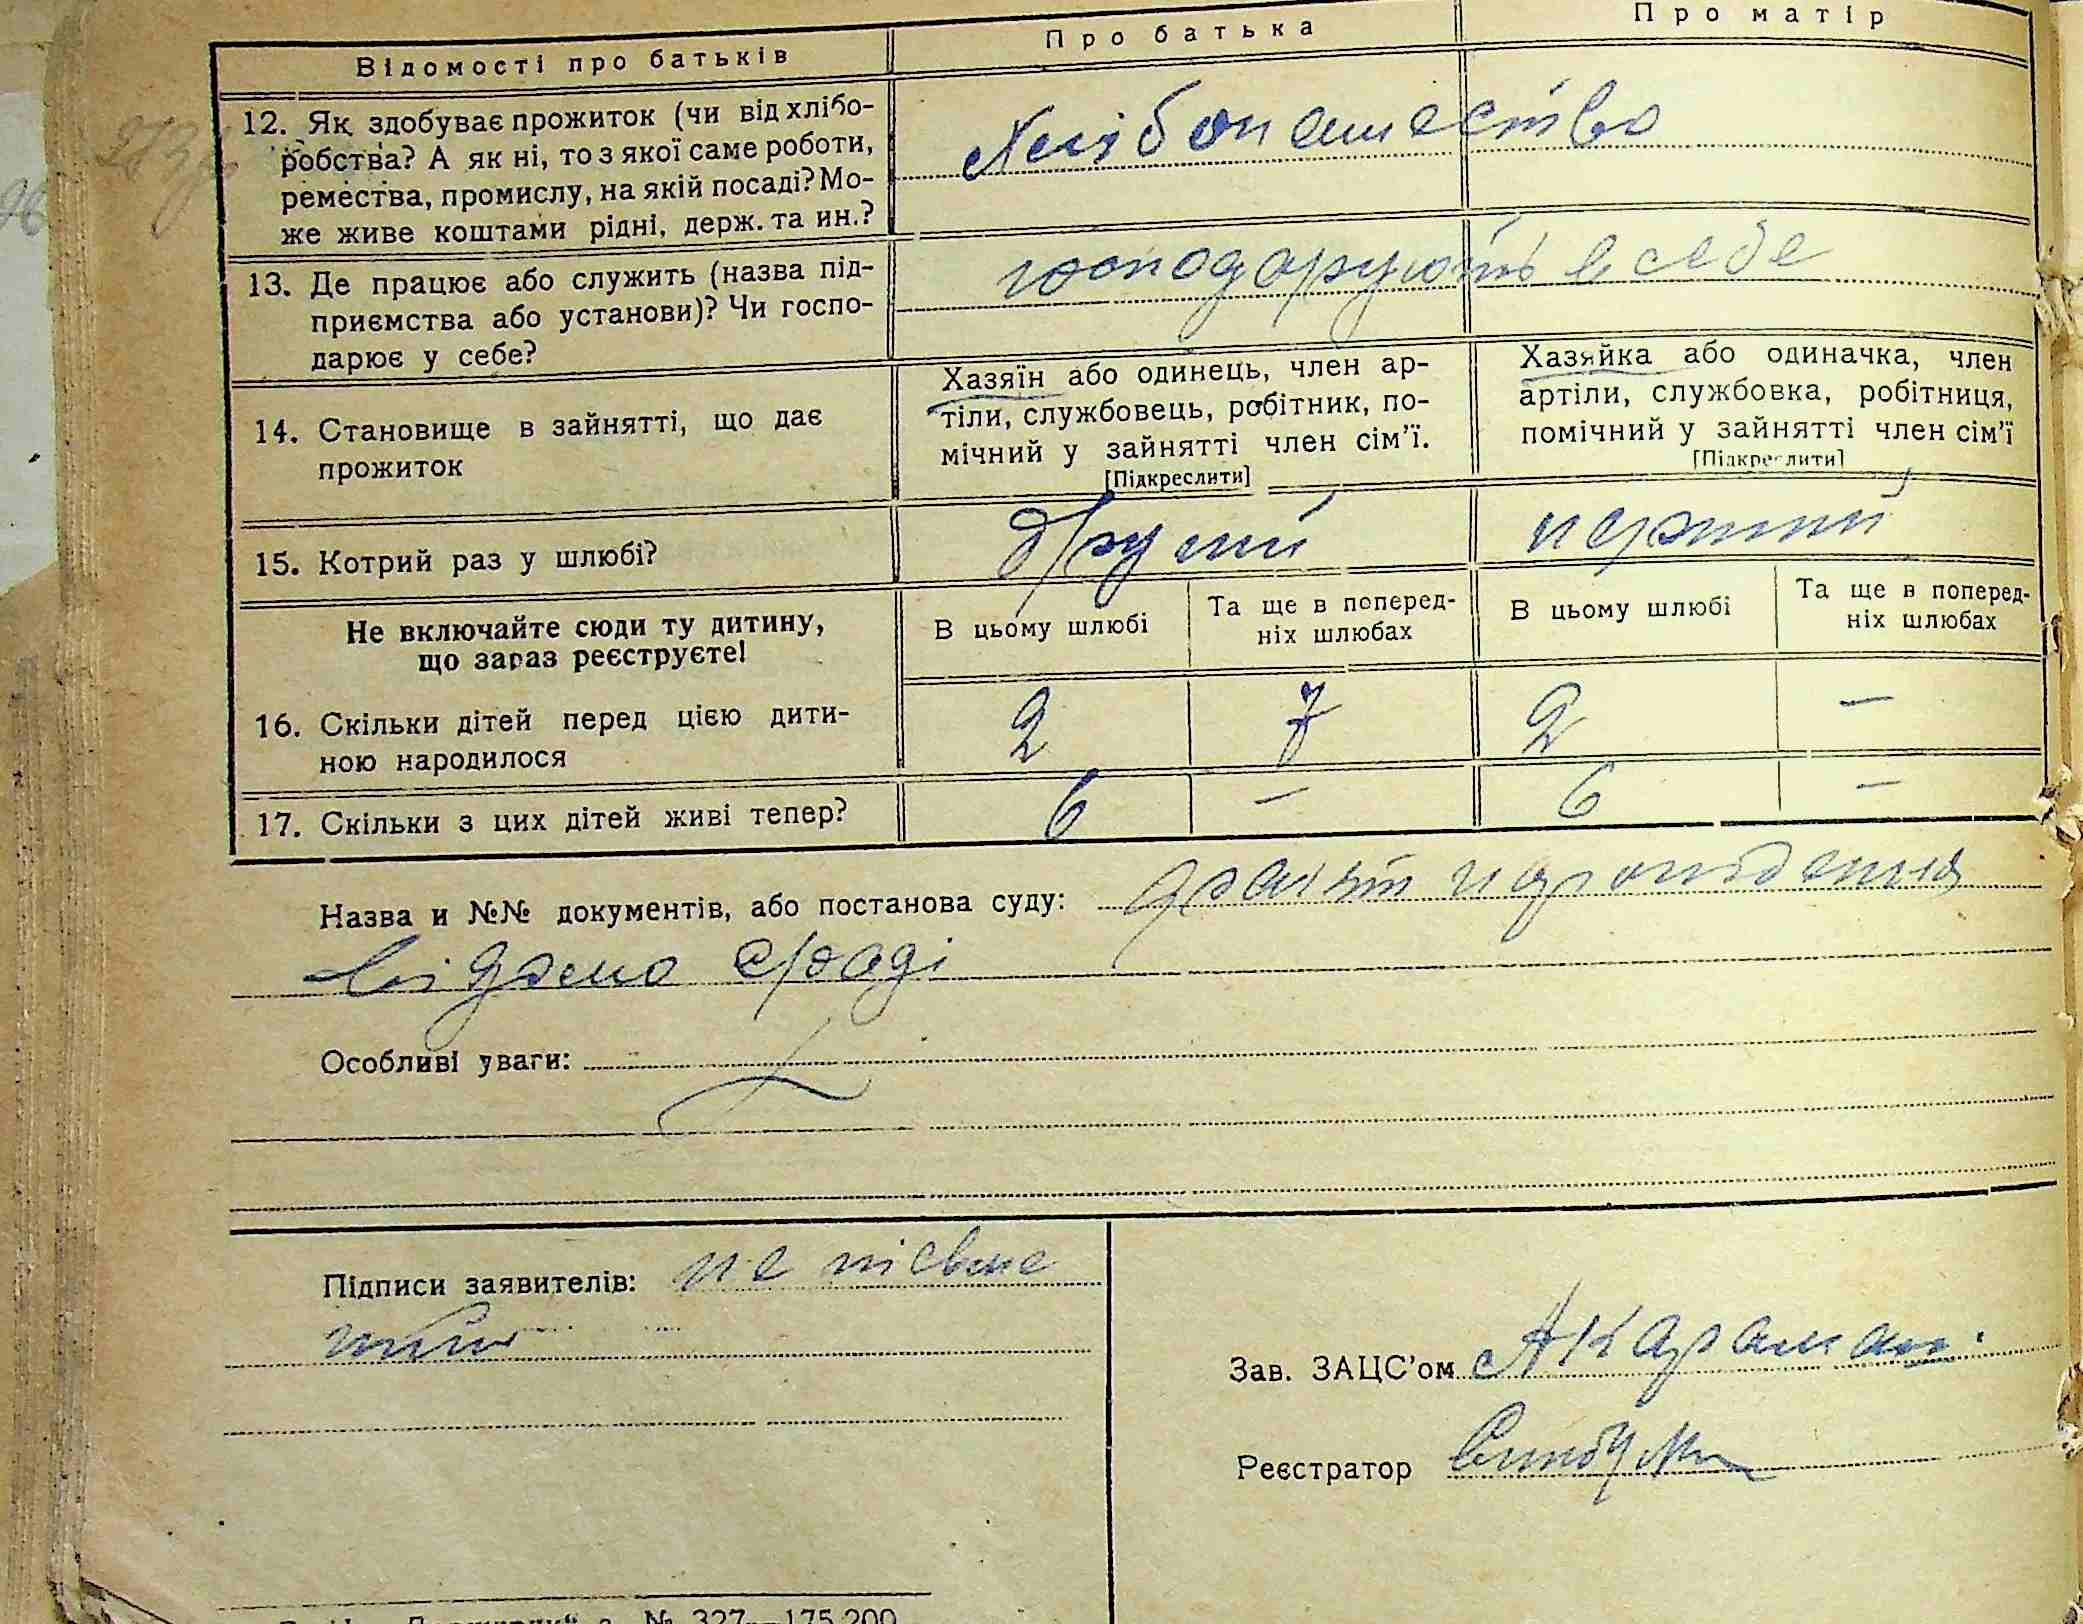 Відомості про батьків Про батька Про матір
12. Як здобуває прожиток (чи від хлібо-
робства? А як ні, то з якої саме роботи,
ремества, промислу, на якій посаді? Мо-
же живе коштами рідні, держ. та ин.?
Хлібопашество
13. Де працює або служить (назва під-
приємства або установи)? Чи госпо-
дарює у себе?
господарують в себе
14. Становище в зайнятті, що дає
прожиток
Хазяїн або одинець, член ар-
тіли, службовець, робітник, по-
мічний у зайнятті член сім'ї.
[Підкреслити]
Хазяйка або одиначка, член
артіли, службовка, робітниця,
помічний у зайнятті член сім'ї
[Підкреслити]
15. Котрий раз у шлюбі? другий перший
Не включайте сюди ту дитину,
що зараз реєструєте!
В цьому шлюбі
Та ще в поперед-
ніх шлюбах
В цьому шлюбі
Та ще в поперед-
ніх шлюбах
16. Скільки дітей перед цією дити-
ною народилося
2 7 2 —
17. Скільки з цих дітей живі тепер? 6 — 6 —
Назва и №№ документів, або постанова суду:
Особливі уваги:
Підписи заявителів: не письме
Зав. ЗАЦС'ом АКараман.
Реєстратор
№ 327—175.200